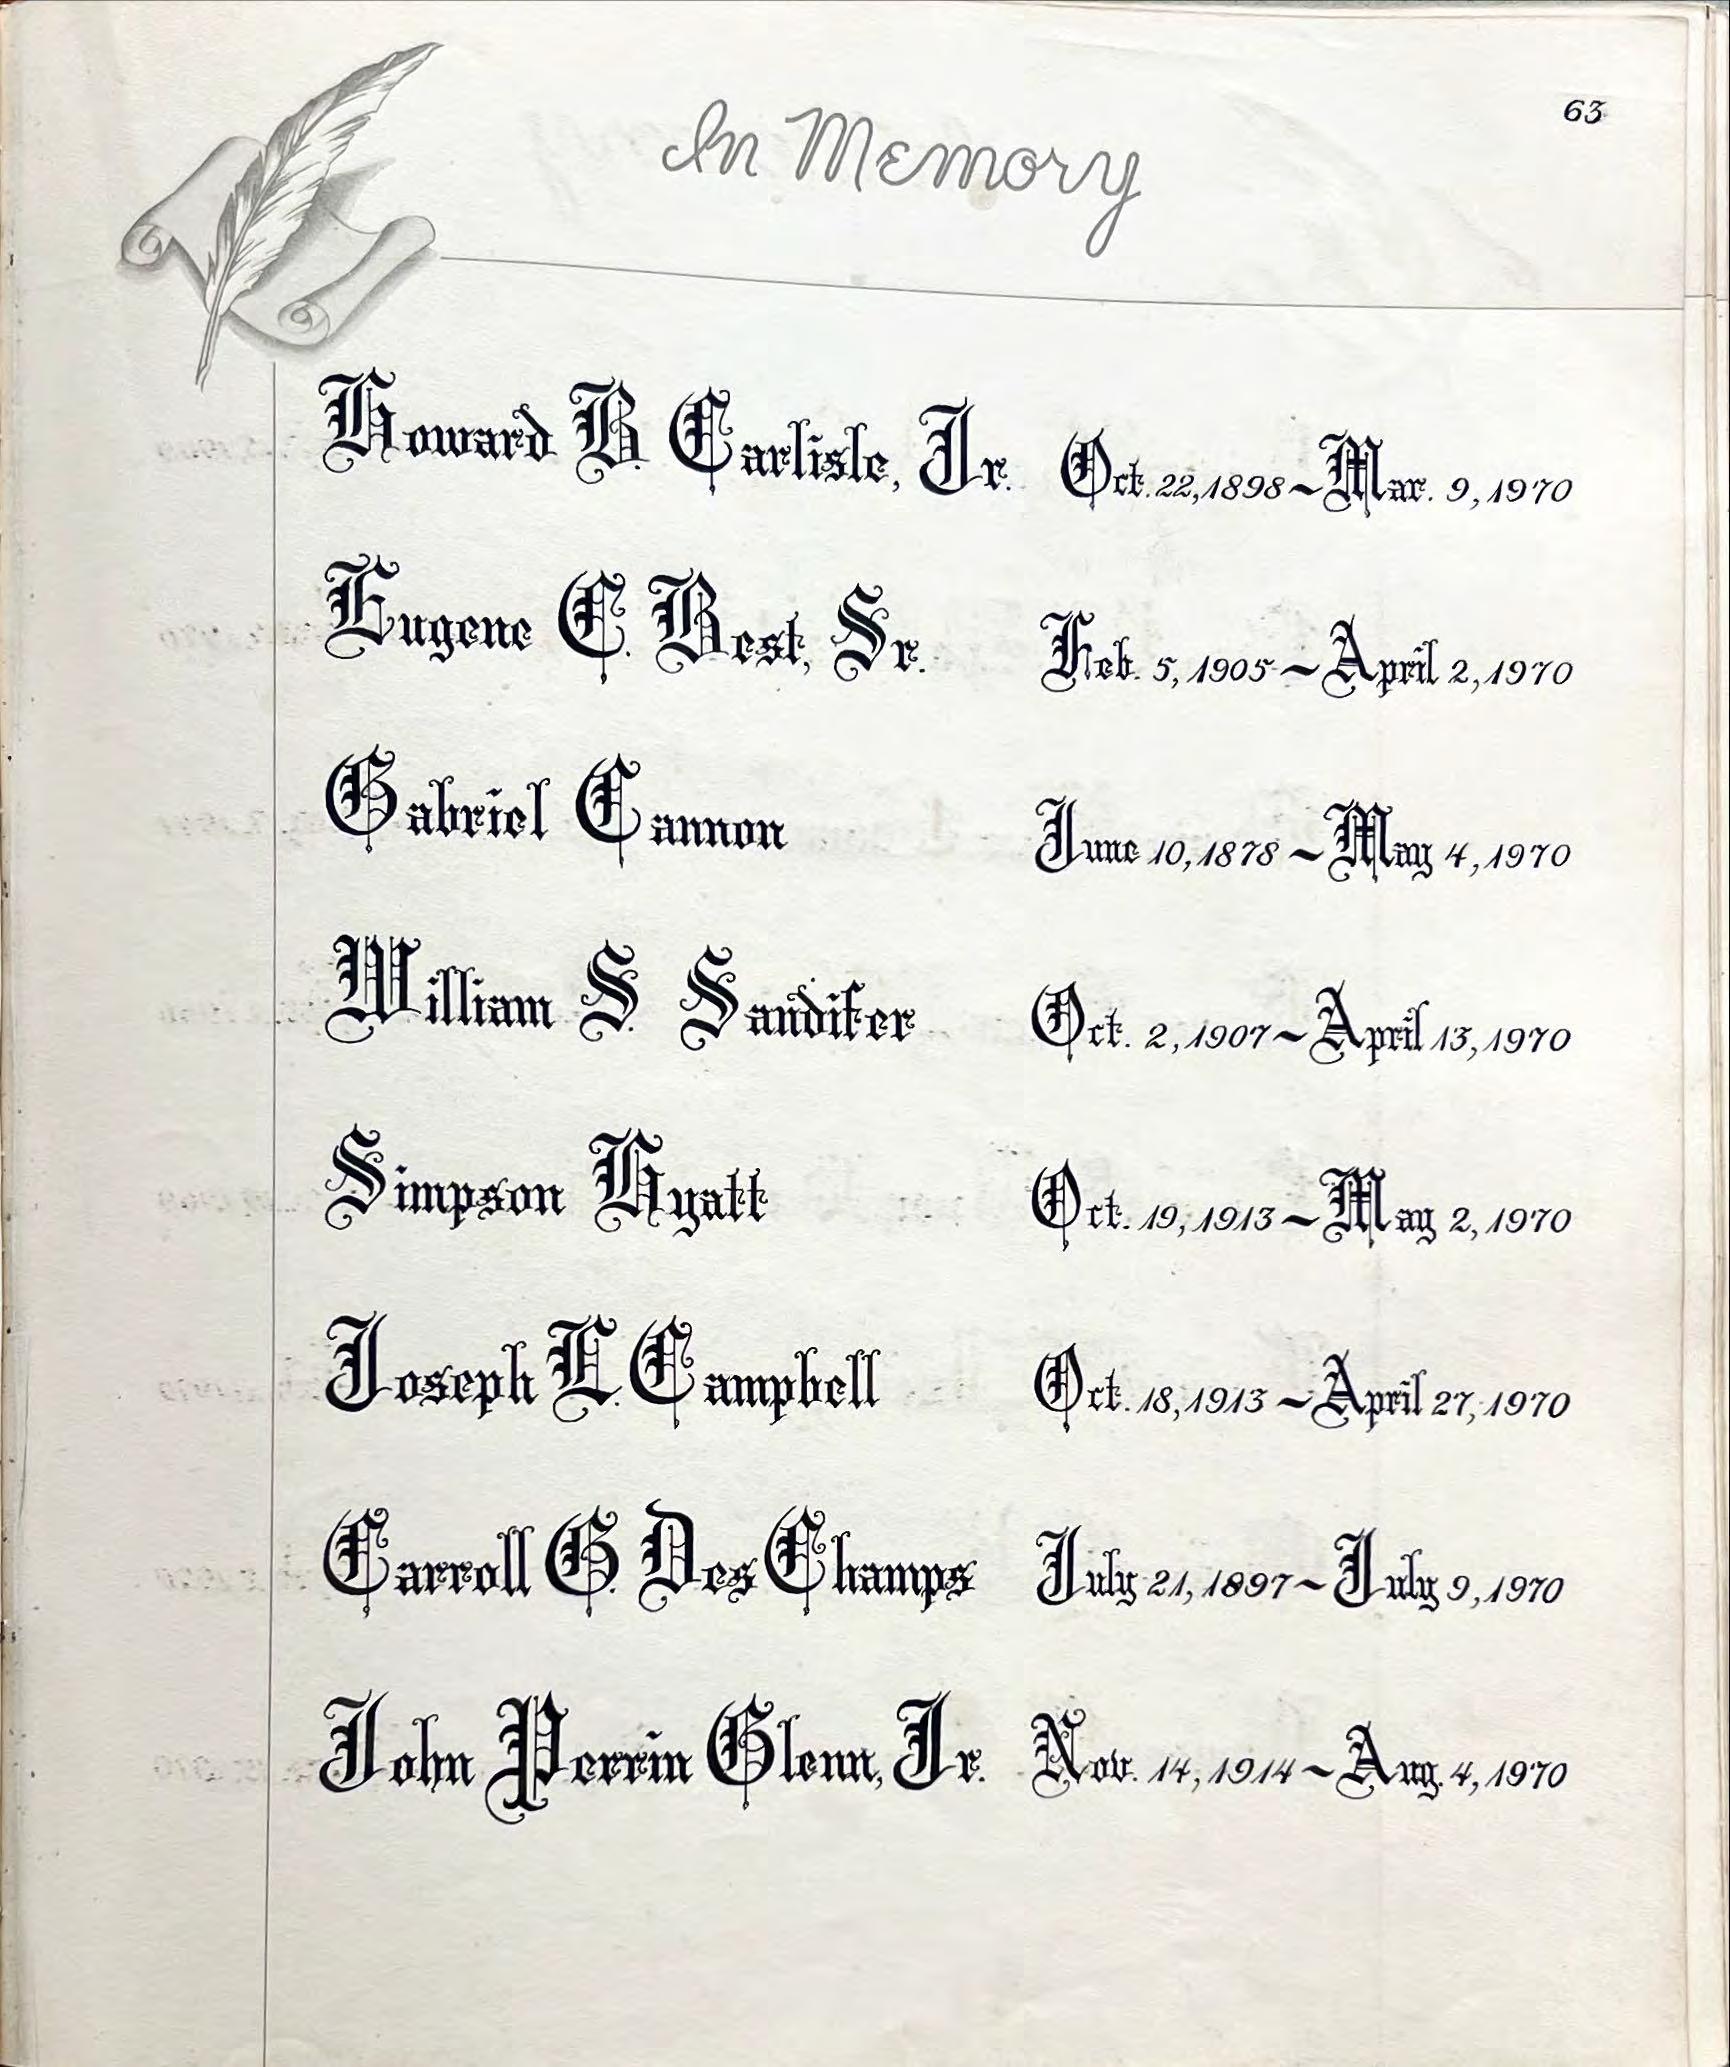 63
In Memory
Howard B. Carlisle, Jr. Oct. 22, 1898 ~ Mar. 9, 1970
Eugene C. Best, Sr. Feb. 5, 1905 ~ April 2, 1970
Gabriel Cannon June 10, 1878 ~ May 4, 1970
William S. Sandifer Oct. 2, 1907 ~ April 13, 1970
Simpson Hyatt Oct. 19, 1913 ~ May 2, 1970
Joseph E. Campbell Oct. 18, 1913 ~ April 27, 1970
Carroll G. DesChamps July 21, 1897 ~ July 9, 1970
John Perrin Glenn, Jr. Nov. 14, 1914 ~ Aug. 4, 1970